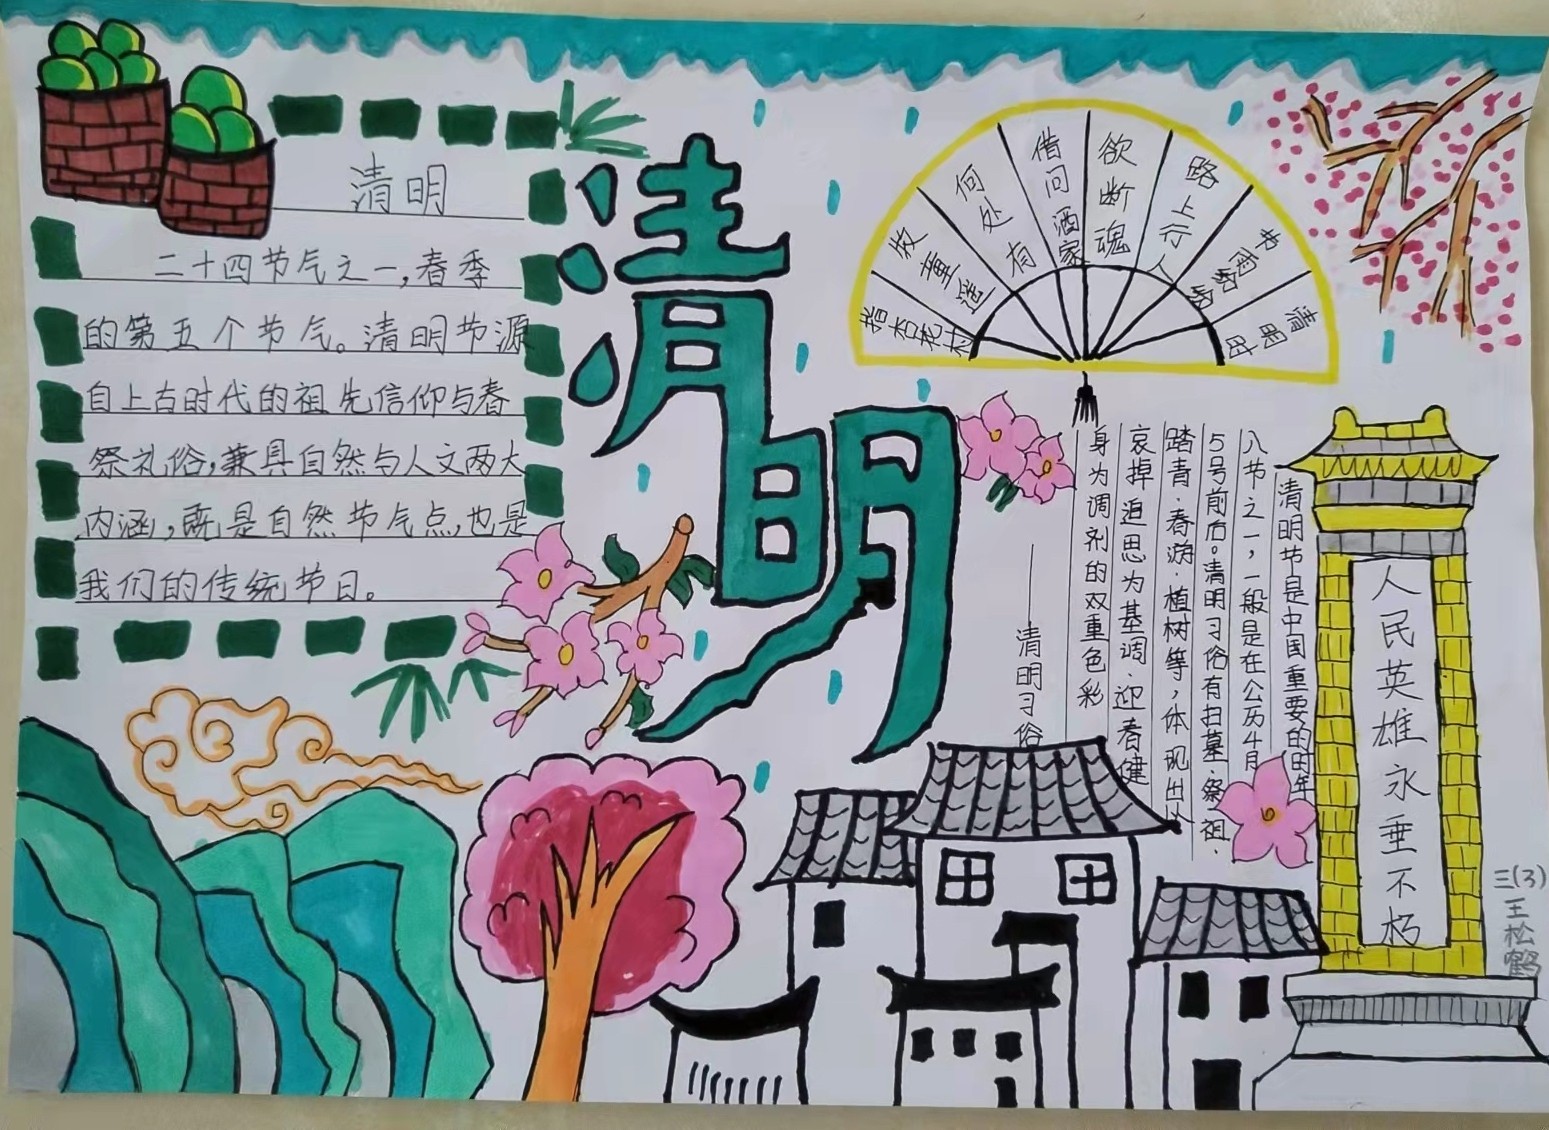 清明
二十四节气之一,春季
的第五个节气。清明节源
自上古时代的祖先信仰与春
祭礼俗,兼具自然与人文两大
内涵,既是自然节气点,也是
我们的传统节日。
清明
清明时
节雨纷纷
路上行人
欲断魂
借问酒家
何处有
牧童遥
指杏花村
清明节是中国重要的田年
八节之一,一般是在公历4月
5号前后。清明习俗有扫墓·祭祖·
踏青·春游·植树等,体现出人
哀掉追思为基调、迎春健
身为调剂的双重色彩
——清明习俗
人民英雄永垂不朽
三(3)
王松鹤